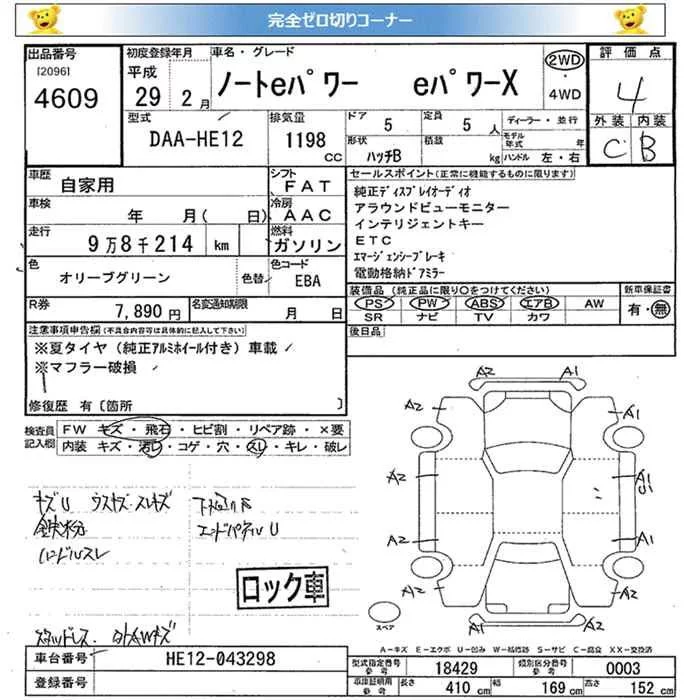 完全ゼロ切りコーナー
出品番号
[2096]
4609
初度登録年月
平成
29 年 2 月
車名・グレード
ノートeパワー eパワーX
2WD
・
4WD
評価点
4
外装 内装
C B
型式
DAA-HE12
排気量
1198
CC
ドア
5
定員
5 人
形状
ハッチB
積載
kg
ディーラー・並行
モデル年式 年
ハンドル 左・右
車歴
自家用
シフト
FAT
車検
年 月( 日)
冷房
AAC
走行
9万8千214 km
燃料
ガソリン
色
オリーブグリーン
色替
色コード
EBA
R券
7,890 円
名変通知期限
月 日
セールスポイント(正常に機能するものに限ります)
純正ディスプレイオーディオ
アラウンドビューモニター
インテリジェントキー
ETC
エマージェンシーブレーキ
電動格納ドアミラー
装備品(純正品に限り○をつけてください)
PS PW ABS エアB AW
SR ナビ TV カワ
新車保証書
有・無
後日品
注意事項申告欄(不具合内容等は具体的に記入して下さい)
※夏タイヤ(純正アルミホイール付き)車載
※マフラー破損
修復歴 有〔箇所 〕
検査員
記入欄
FW キズ・飛石・ヒビ割・リペア跡・×要
内装 キズ・汚レ・コゲ・穴・スレ・キレ・破レ
キズU ウスキズ・スレキズ
鉄粉
ハンドルスレ
エンドパネルU
ロック車
スタッドレス.
A2 A1
A2 A1
A2 A1
U1
A2 A1
A2 A1
スペア
A-キズ E-エクボ U-凹み W-補修跡 S-サビ C-腐食 XX-交換済
車台番号
HE12-043298
登録番号
型式指定番号
参考
18429
類別区分番号
参考
0003
車庫証明用
参考
長さ 410 cm
幅 169 cm
高さ 152 cm